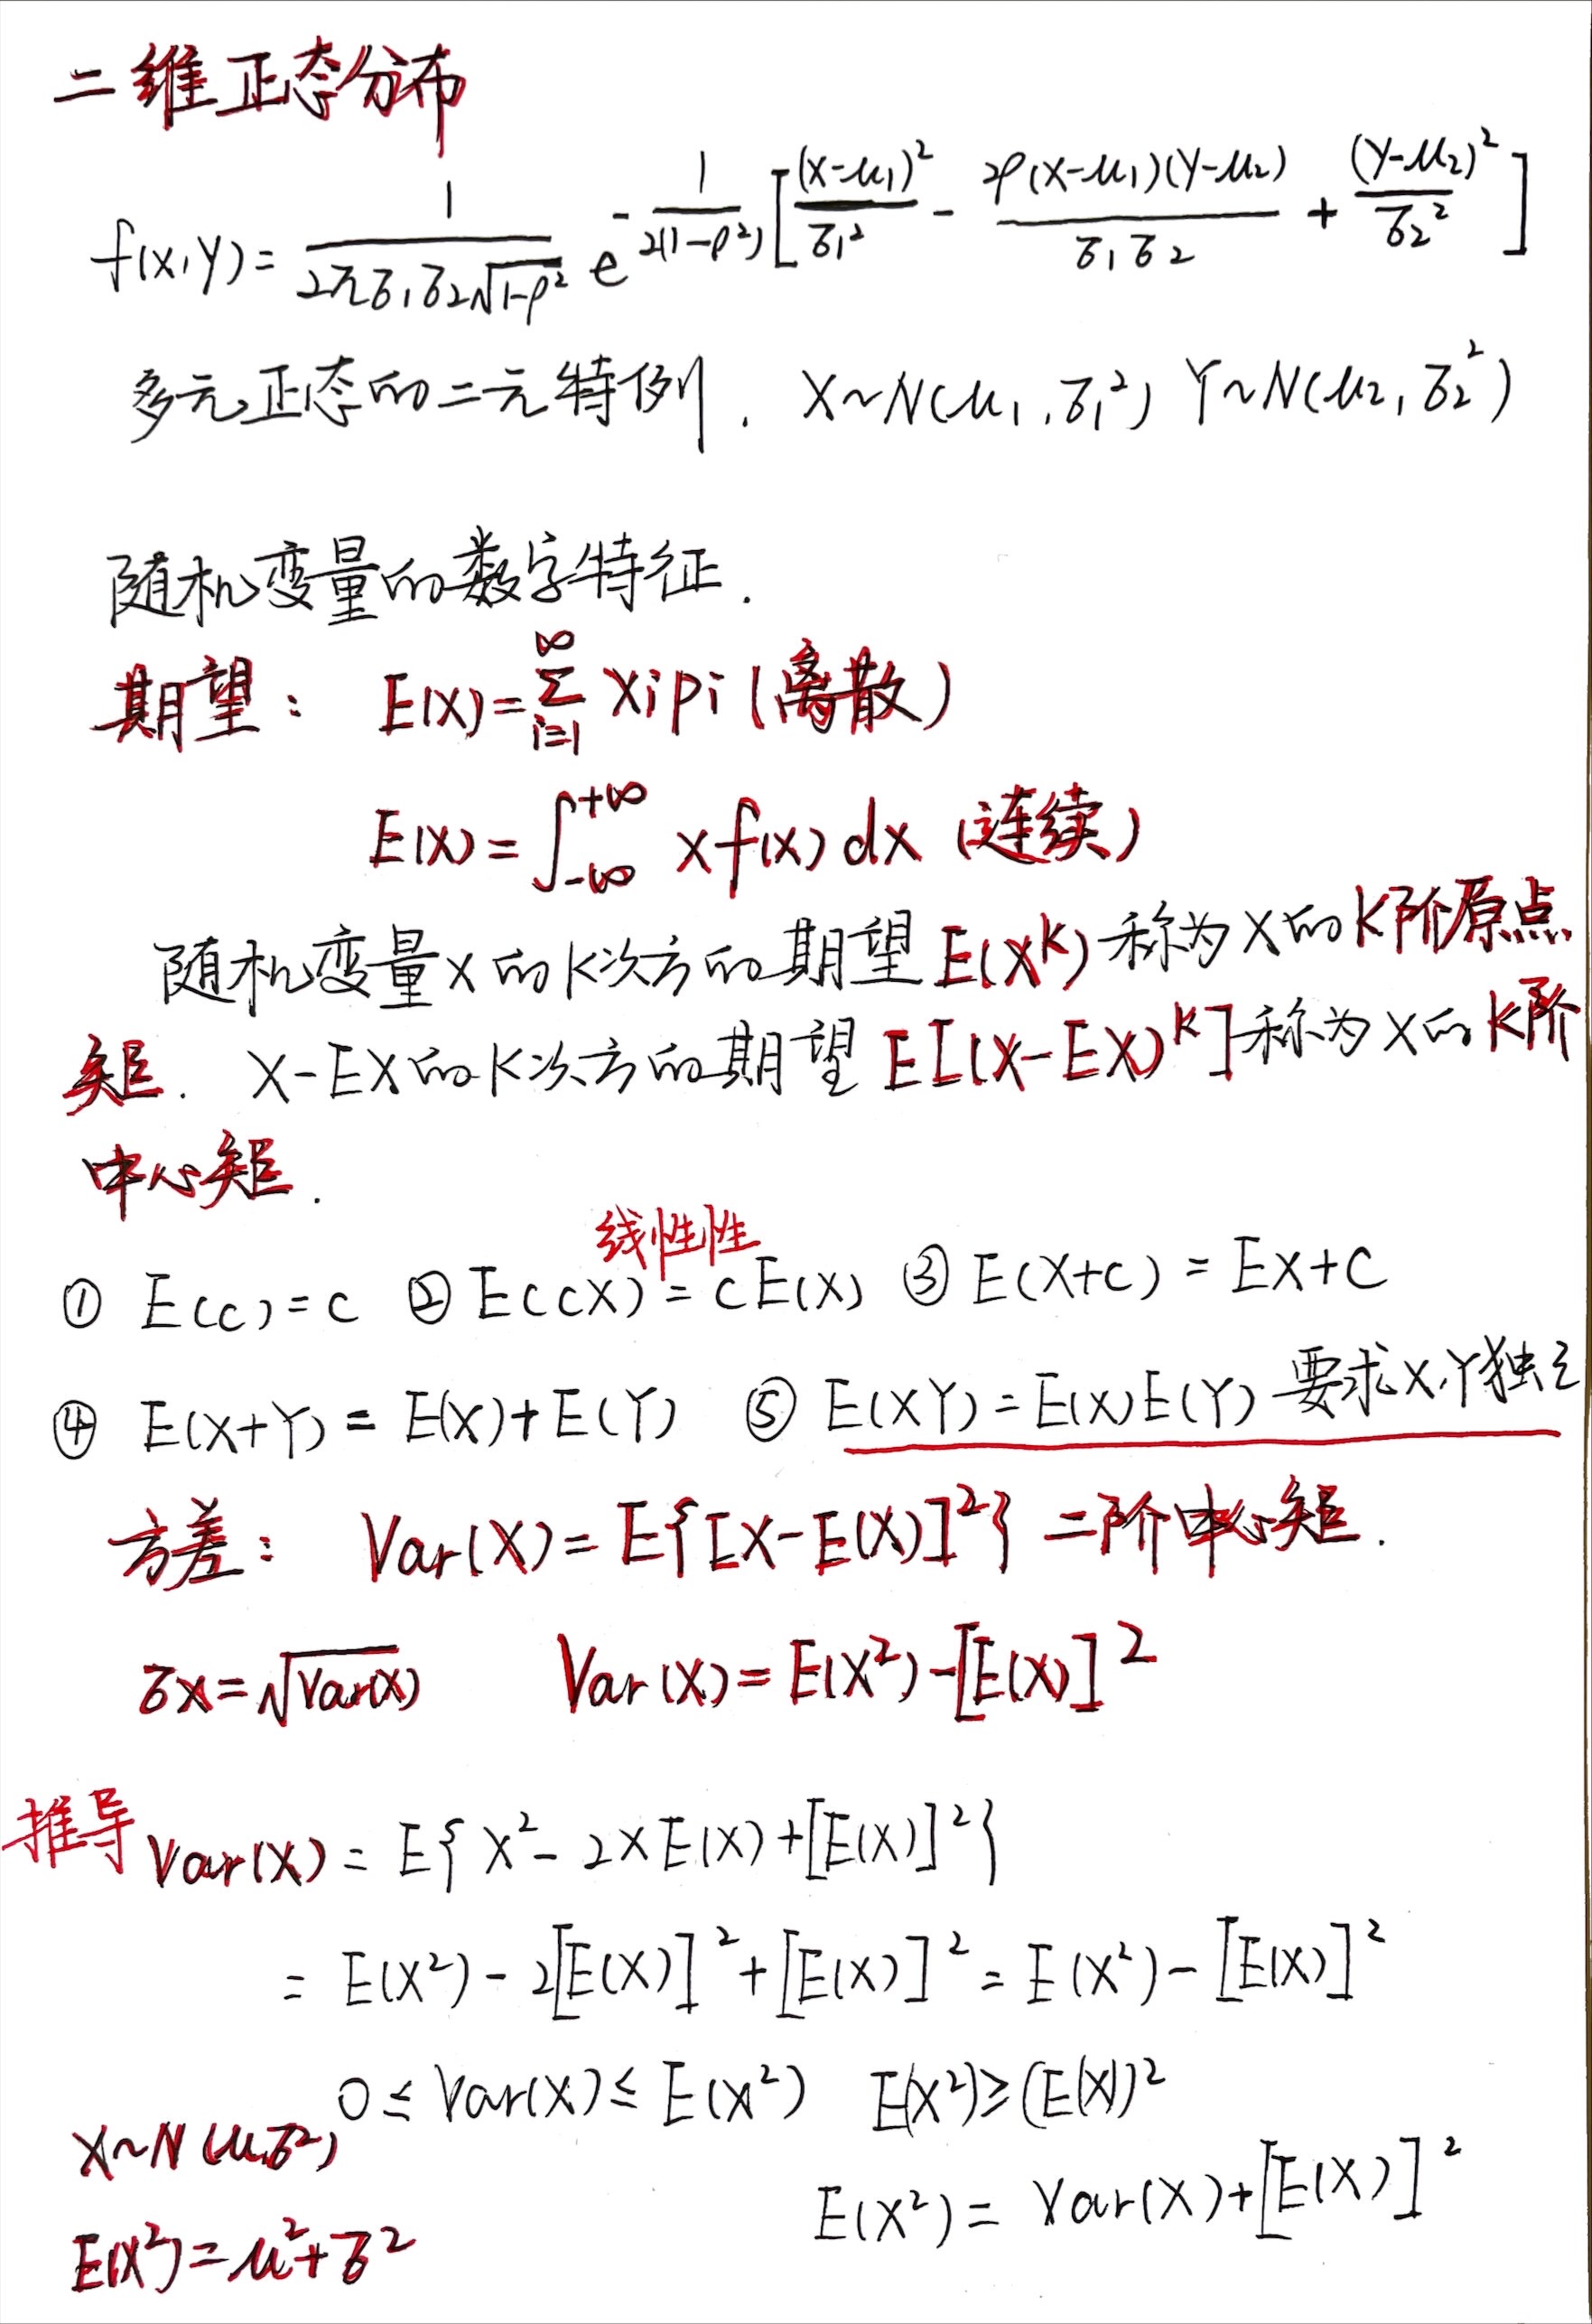 二维正态分布
f(x,y)=\frac{1}{2πσ_1σ_2\sqrt{1-ρ^2}} e^{-\frac{1}{2(1-ρ^2)}[\frac{(x-μ_1)^2}{σ_1^2}-\frac{2ρ(x-μ_1)(y-μ_2)}{σ_1σ_2}+\frac{(y-μ_2)^2}{σ_2^2}]}
多元正态的二元特例. X~N(μ_1,σ_1^2) Y~N(μ_2,σ_2^2)
随机变量的数字特征.
期望: E(X)=\sum_{i=1}^{∞} xipi (离散)
E(X)=\int_{-∞}^{+∞} xf(x)dx (连续)
随机变量X的K次方的期望E(X^K)称为X的K阶原点
矩. X-EX的K次方的期望E[(X-EX)^K]称为X的K阶
中心矩.
线性性
① E(C)=C ② E(CX)=CE(X) ③ E(X+C)=EX+C
④ E(X+Y)=E(X)+E(Y) ⑤ E(XY)=E(X)E(Y) 要求X,Y独立
方差: Var(X)=E{[X-E(X)]^2} 二阶中心矩.
σx=\sqrt{Var(X)} Var(X)=E(X^2)-[E(X)]^2
推导 Var(X)=E{X^2-2XE(X)+[E(X)]^2}
=E(X^2)-2[E(X)]^2+[E(X)]^2=E(X^2)-[E(X)]^2
0≤Var(X)≤E(X^2) E(X^2)≥(E(X))^2
X~N(μ,σ^2)
E(X^2)=Var(X)+[E(X)]^2
E(X^2)=μ^2+σ^2